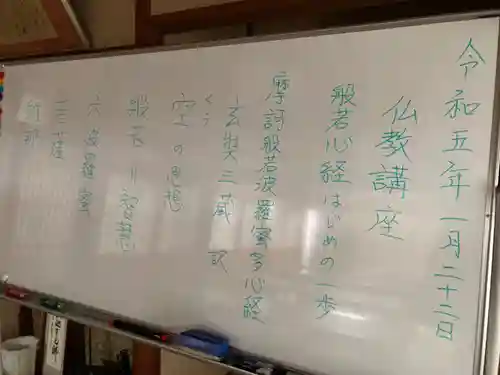 令和五年一月二十二日
仏教講座
般若心経はじめの一歩
摩訶般若波羅蜜多心経
玄奘三蔵 訳
くう
空の思想
般若=智慧
六波羅蜜
菩薩